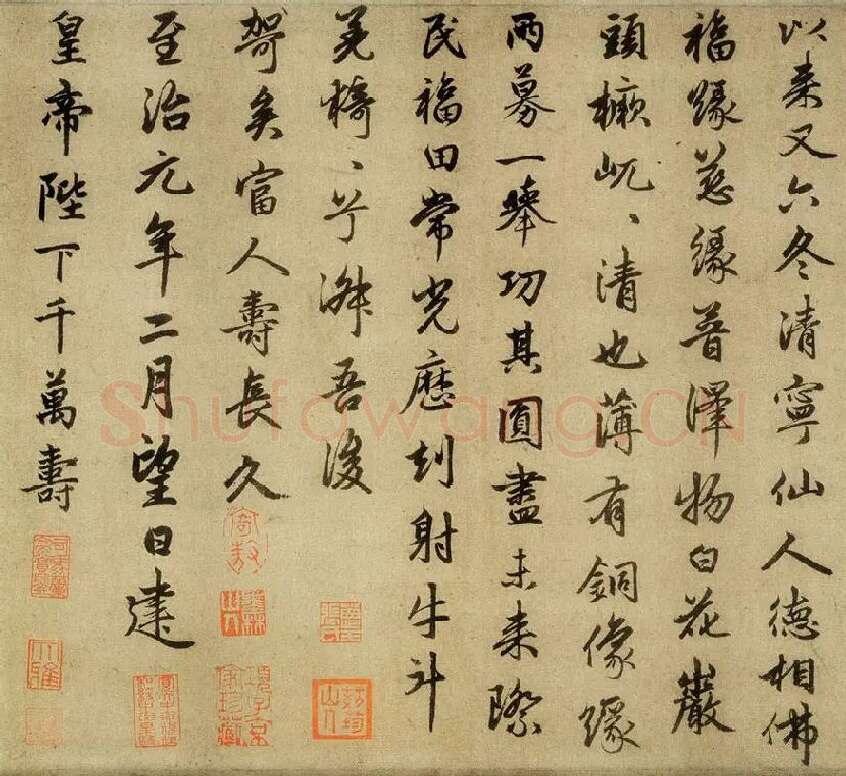 以来又六冬清寧仙人德相佛
福緣慈緣普澤物白花巖
頭橛岏、清也薄有銅像緣
两募一舉功其圓盡未来際
民福田常光歷刦射牛斗
、兮吾後
矣富人壽長久
至治元年二月望日建
皇帝陛下千萬壽
項子京家珍藏
Shufawang.CN